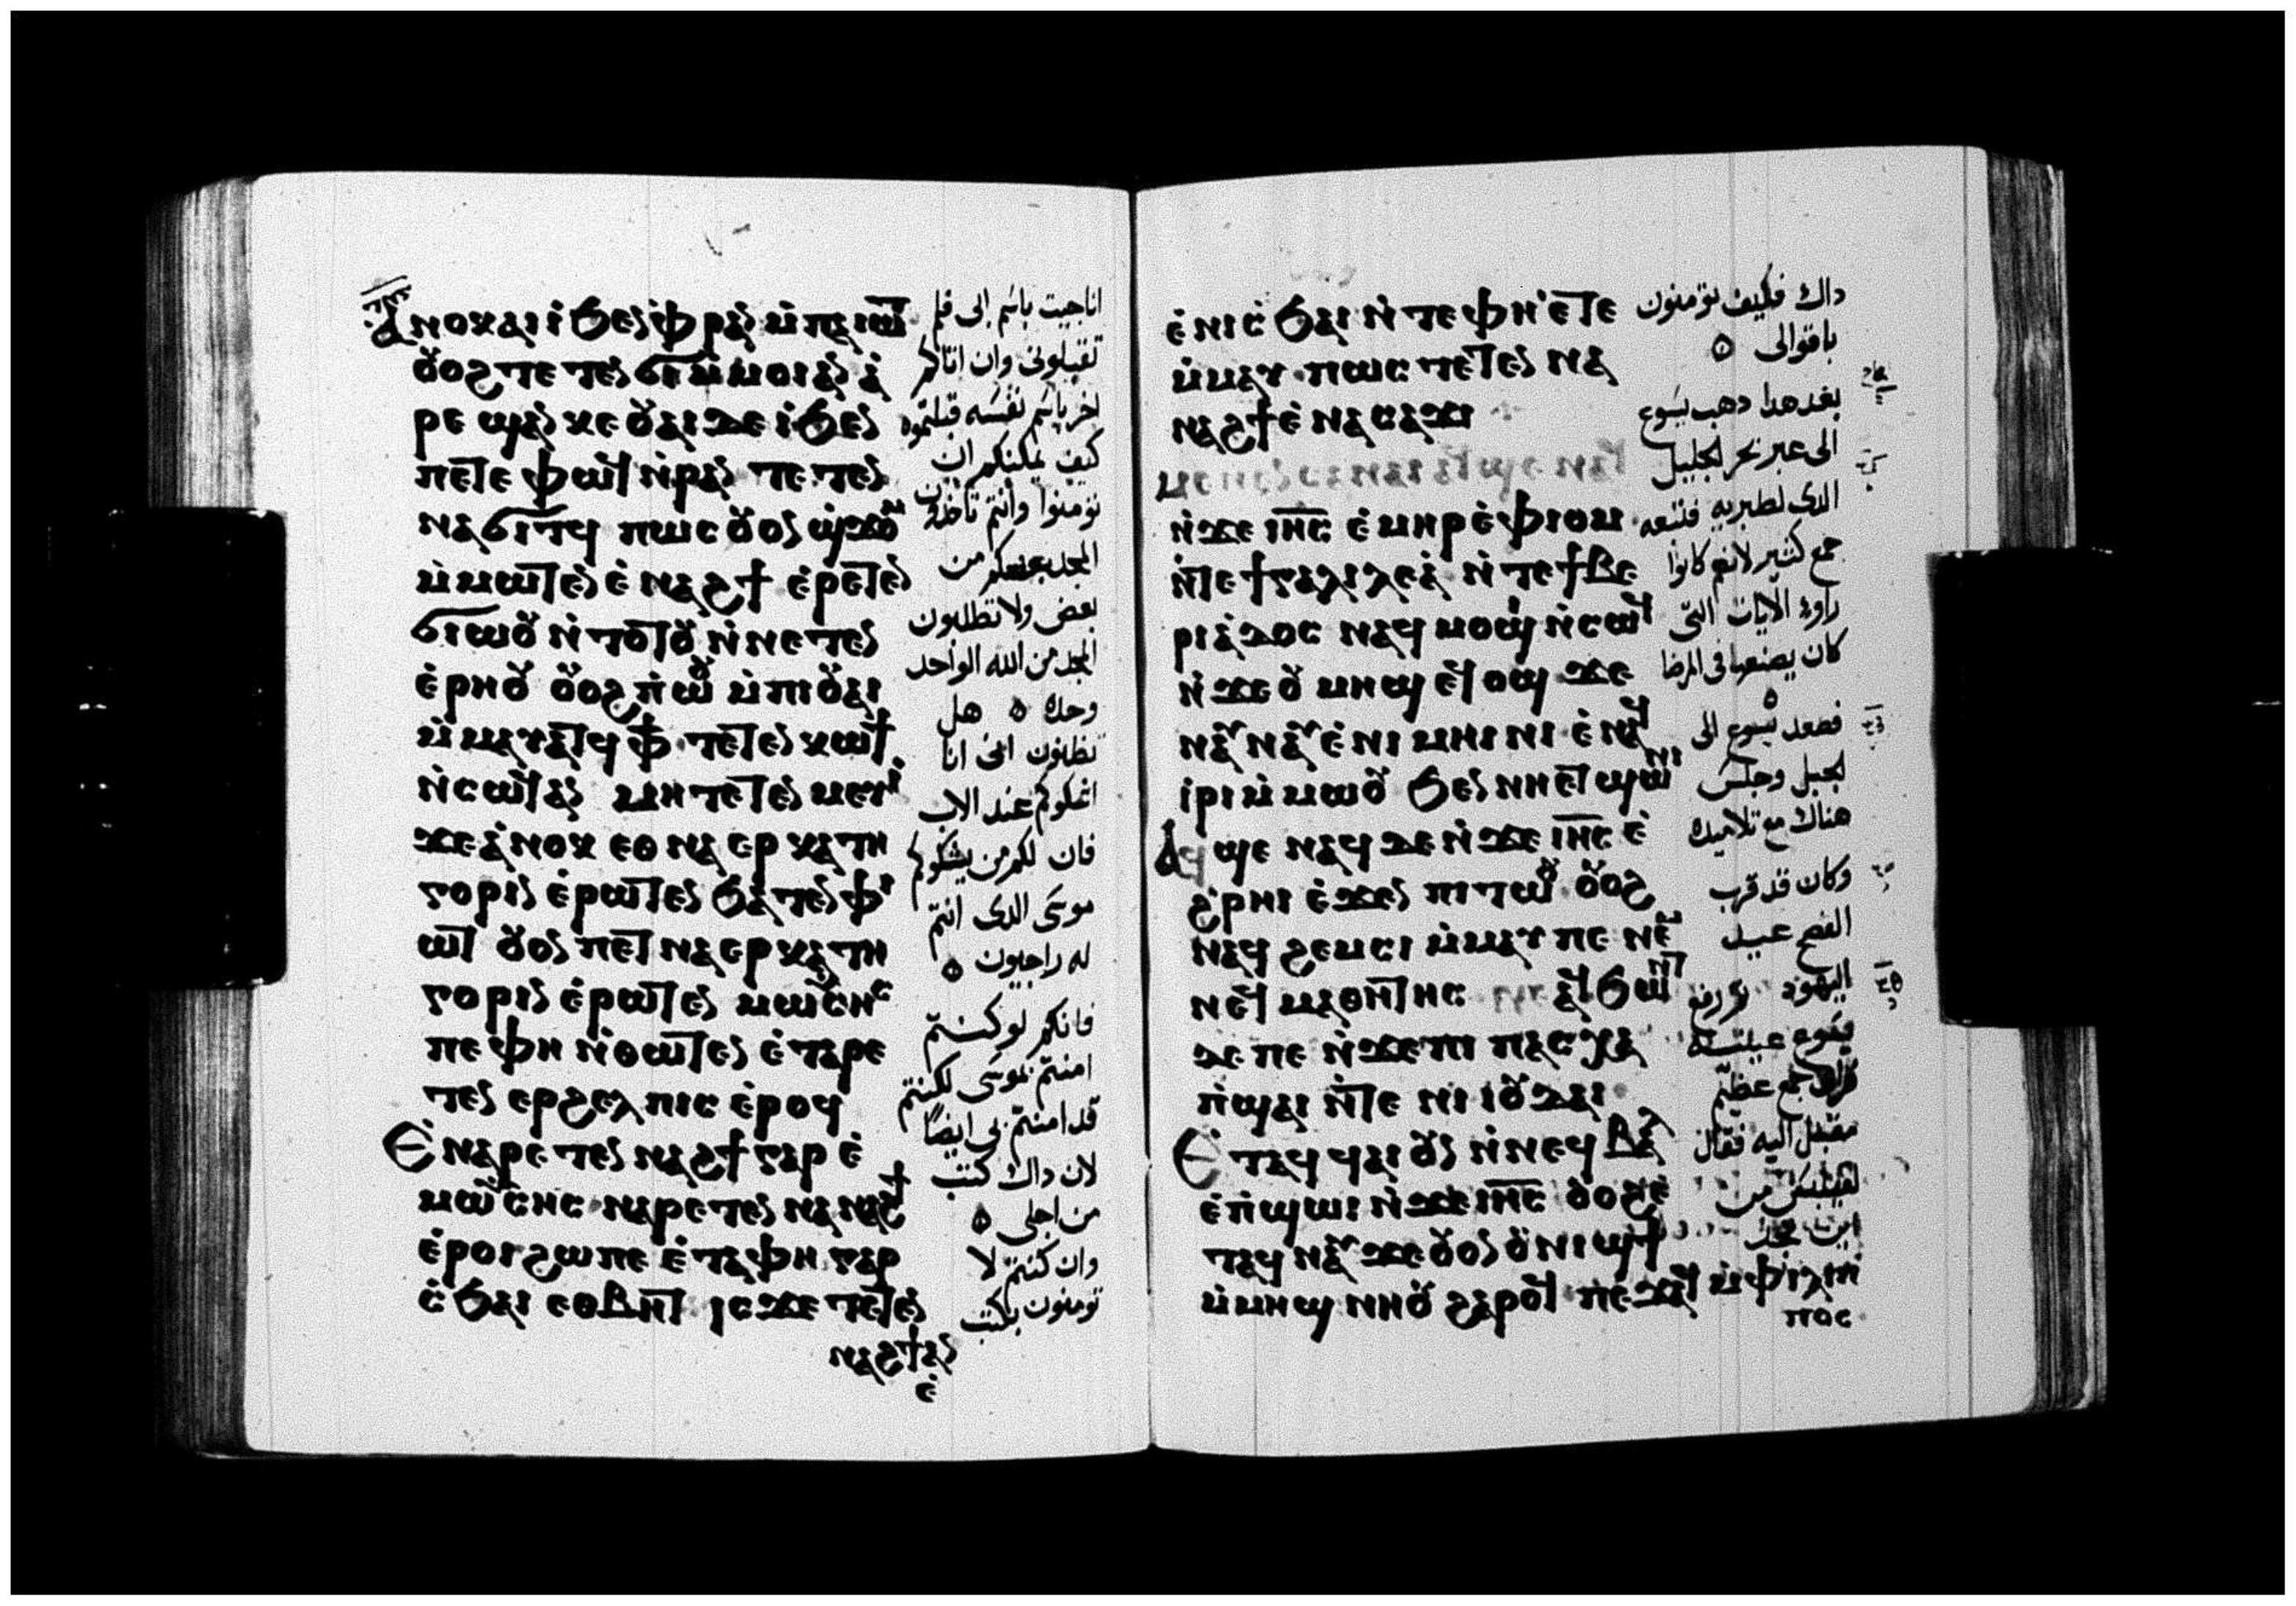 ⲁⲛⲟⲕ ⲁⲓⲓ̇ ϧⲉⲛ ⲫⲣⲁⲛ ⲙ̇ⲡⲁⲓⲱⲧ
ⲟⲩⲟϩ ⲧⲉⲧⲉⲛϭⲓ ⲙ̇ⲙⲟⲓ ⲁⲛ ⲁ̇
ⲣⲉ ϣⲁⲛ ⲕⲉ ⲟⲩⲁⲓ ⲇⲉ ⲓ̇ ϧⲉⲛ
ⲡⲉⲧⲉ ⲫⲱϥ ⲛ̇ⲣⲁⲛ ⲧⲉⲧⲉⲛ
ⲛⲁϭⲓⲧϥ ⲡⲱⲥ ⲟⲩⲟⲛ ϣ̇ϫⲟⲙ
ⲙ̇ⲙⲱⲧⲉⲛ ⲉ̇ⲛⲁϩϯ ⲉ̇ⲣⲉⲧⲉⲛ
ϭⲓⲱⲟⲩ ⲛ̇ⲧⲟⲧⲟⲩ ⲛ̇ⲛⲉⲧⲉⲛ
ⲉ̇ⲣⲏⲟⲩ ⲟⲩⲟϩ ⲡ̇ⲱⲟⲩ ⲙ̇ⲡⲓⲟⲩⲁⲓ
ⲙ̇ⲙⲁⲩⲁⲧϥ ⲫϯ ⲧⲉⲧⲉⲛⲕⲱϯ
ⲛ̇ⲥⲱϥ ⲁⲛ ⲙⲏ ⲧⲉⲧⲉⲛⲙⲉⲩⲓ̇
ϫⲉ ⲁ̇ⲛⲟⲕ ⲉⲑⲛⲁⲉⲣⲕⲁⲧⲏ
ⲅⲟⲣⲓⲛ ⲉ̇ⲣⲱⲧⲉⲛ ϧⲁⲧⲉⲛ ⲫⲓ
ⲱⲧ ⲟⲩⲟⲛ ⲡⲉⲧⲛⲁⲉⲣⲕⲁⲧⲏ
ⲅⲟⲣⲓⲛ ⲉ̇ⲣⲱⲧⲉⲛ ⲙ̇ⲱⲩⲥⲏⲥ
ⲡⲉ ⲫⲏ ⲛ̇ⲑⲱⲧⲉⲛ ⲉ̇ⲧⲁⲣⲉ
ⲧⲉⲛ ⲉⲣϩⲉⲗⲡⲓⲥ ⲉ̇ⲣⲟϥ
ⲉ̇ⲛⲁⲣⲉⲧⲉⲛ ⲛⲁϩϯ ⲅⲁⲣ ⲉ̇
ⲙⲱⲩⲥⲏⲥ ⲛⲁⲣⲉⲧⲉⲛ ⲛⲁⲛⲁϩϯ
ⲉ̇ⲣⲟⲓ ϩⲱ ⲡⲉ ⲉ̇ⲧⲁ ⲫⲏ ⲅⲁⲣ
ⲥ̇ϧⲁⲓ ⲉⲑⲃⲏⲧ ⲓⲥϫⲉ ⲧⲉⲧⲉⲛ
ⲛⲁϩϯ ⲁⲛ
ⲉ̇
انا جيت باسم ابى فلم
تقبلونى وان اتاكم
اخر باسم نفسه قبلتموه
كيف يمكنكم ان
تومنوا وانتم تاخذون
المجد بعضكم من
بعض ولا تطلبون
المجد من الله الواحد
وحده ٥ هل
تظنون انى انا
اشكوكم عند الاب
فان لكم من يشكوكم
موسى الدى انتم
له راجيون ٥
فانكم لو كنتم
امنتم بموسى لكنتم
قد امنتم بى ايضاً
لان داك كتب
من اجلى ٥
وان كنتم لا
تومنون بكتب
ⲉ̇ⲛⲓⲥϧⲁⲓ ⲛ̇ⲧⲉ ⲫⲏ ⲉ̇ⲧⲉ
ⲙ̇ⲙⲁⲩ ⲡⲱⲥ ⲧⲉⲧⲉⲛ ⲛⲁ
ⲛⲁϩϯ ⲉ̇ⲛⲁⲥⲁϫⲓ
ⲙⲉⲛⲉⲛⲥⲁ ⲛⲁⲓ ⲁϥϣⲉ ⲛⲁϥ
ⲛ̇ϫⲉ ⲓⲏ̅ⲥ̅ ⲉ̇ⲙⲏⲣ ⲉ̇ⲫⲓⲟⲙ
ⲛ̇ⲧⲉ ϯⲅⲁⲗⲓⲗⲉⲁ̇ ⲛ̇ⲧⲉ ϯⲃⲉ
ⲣⲓⲁ̇ⲇⲟⲥ ⲛⲁϥ ⲙⲟϣⲓ ⲛ̇ⲥⲱϥ
ⲛ̇ϫⲉ ⲟⲩⲙⲏϣ ⲉϥⲟϣ ϫⲉ
ⲛⲁⲩⲛⲁⲩ ⲉ̇ⲛⲓⲙⲏⲓⲛⲓ ⲉ̇ⲛⲁϥ
ⲓ̇ⲣⲓ ⲙ̇ⲙⲱⲟⲩ ϧⲉⲛ ⲛⲏⲉⲧϣⲱⲛⲓ
ⲁϥϣⲉ ⲛⲁϥ ⲇⲉ ⲛ̇ϫⲉ ⲓⲏ̅ⲥ̅ ⲉ̇
ϩ̇ⲣⲏⲓ ⲉ̇ϫⲉⲛ ⲡⲓⲧⲱⲟⲩ ⲟⲩⲟϩ
ⲛⲁϥ ϩⲉⲙⲥⲓ ⲙ̇ⲙⲁⲩ ⲡⲉ ⲛⲉⲙ
ⲛⲉϥ ⲙⲁⲑⲏⲧⲏⲥ ⲁϥϧⲱⲛⲧ
ⲇⲉ ⲡⲉ ⲛ̇ϫⲉ ⲡⲓ ⲡⲁⲥⲭⲁ
ⲡ̇ϣⲁⲓ ⲛ̇ⲧⲉ ⲛⲓ ⲓⲟⲩⲇⲁⲓ
ⲉ̇ⲧⲁϥ ϥⲁⲓ ⲟⲩⲛ ⲛ̇ⲛⲉϥⲃⲁⲗ
ⲉ̇ⲡ̇ϣⲱⲓ ⲛ̇ϫⲉ ⲓⲏ̅ⲥ̅ ⲟⲩⲟϩ ⲉ̇
ⲧⲁϥ ⲛⲁⲩ ϫⲉ ⲟⲩⲟⲛ ⲟⲩⲛⲓϣϯ
ⲙ̇ⲙⲏϣ ⲛⲏⲟⲩ ϩⲁⲣⲟϥ ⲡⲉϫⲁϥ ⲙ̇ⲫⲓⲗⲓⲡ
ⲡⲟⲥ
داك فكيف تومنون
باقوالى ٥
بعد هدا دهب يسوع
الى عبر بحر الجليل
الدى لطبريه فتبعه
جمع كتير لانهم كانوا
راوا الايات التى
كان يصنعها فى المرضا
٥
فصعد يسوع الى
الجبل وجلس
هناك مع تلاميده
وكان قد قرب
الفصح عيد
اليهود رفع
يسوع عينيه
جمع عظيم
مقبل اليه فقال
لفيلبس من
اين